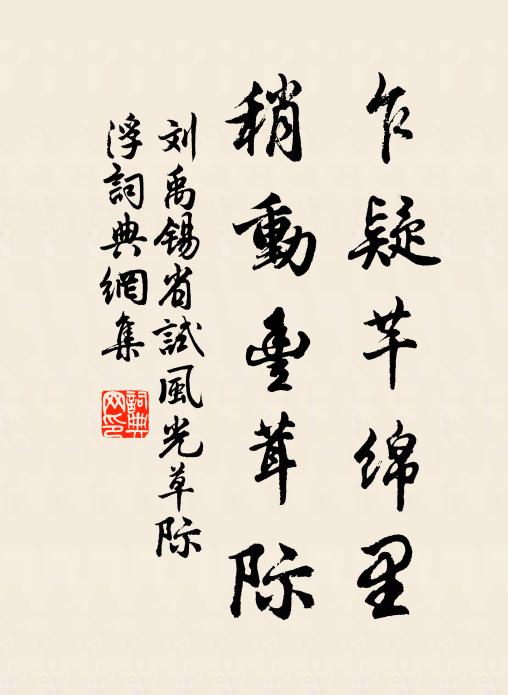 乍疑芊绵里
稍動豊茸际
刘禹锡省試風光草际
浮詞典網集
詞典
网印